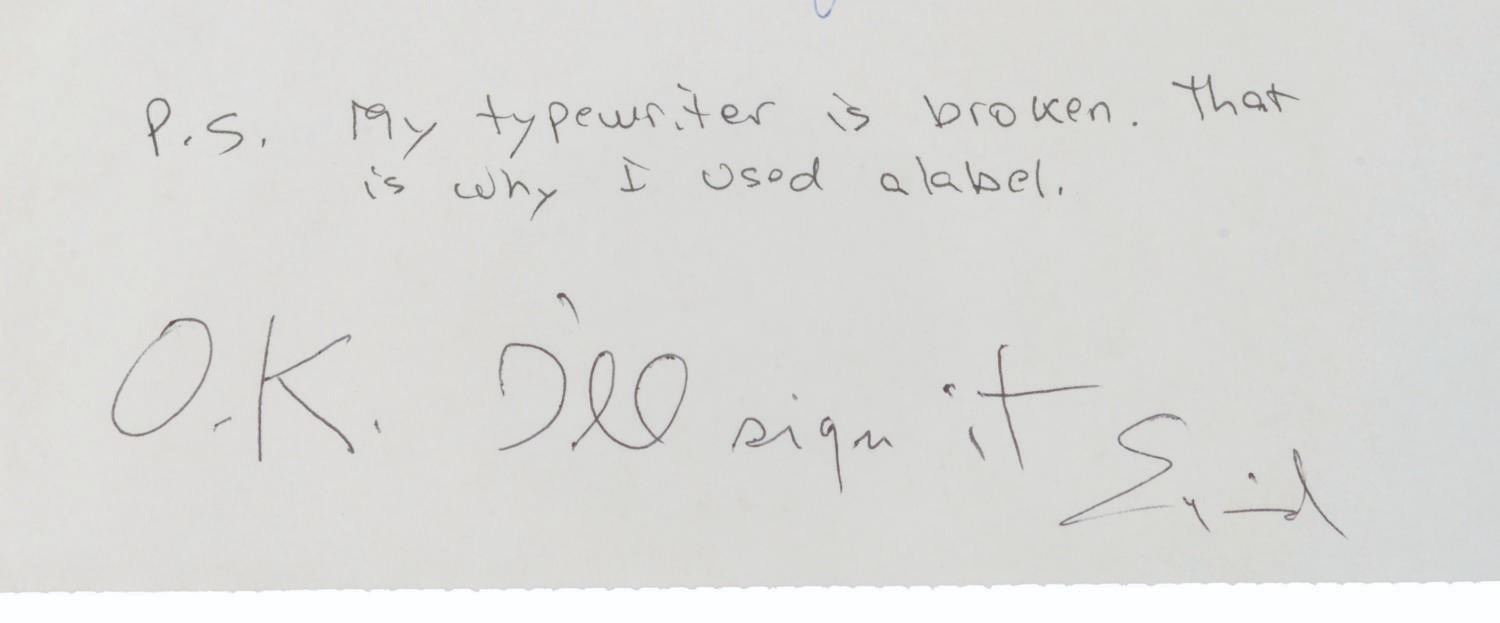 P.S. My typewriter is broken. That
is why I used a label.
O.K. I'll sign it